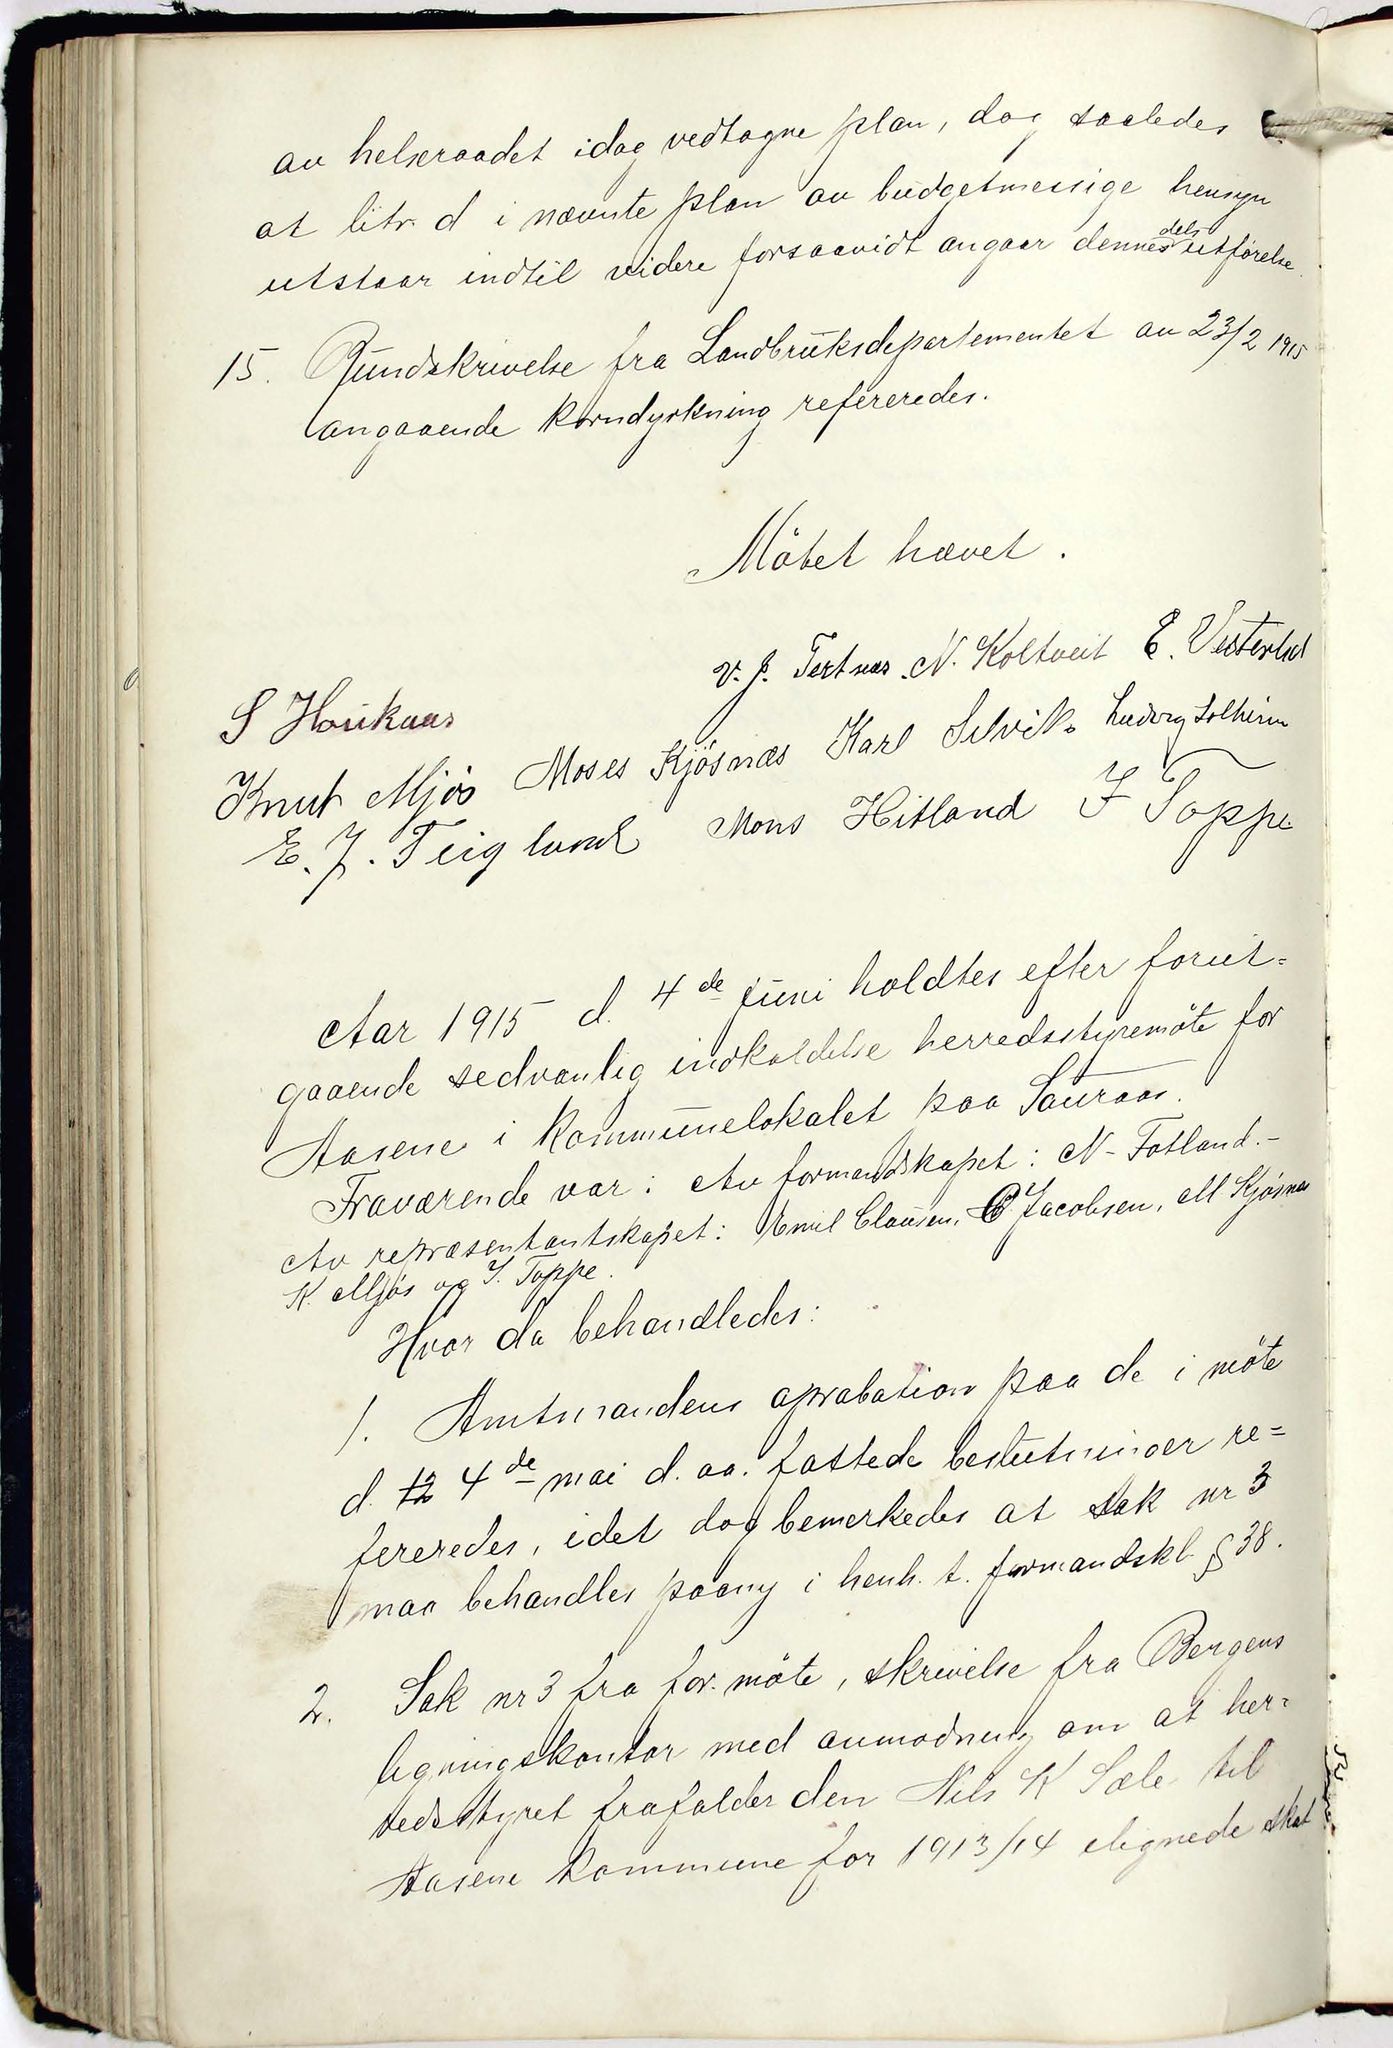 av helseraadet idag vedtagne plan, dog saaledes
at litr. d i nævnte plan av budgetmessige hensyn
utstaar indtil videre forsaavidt angaar dennes dels utførelse.
15. Rundskrivelse fra Landbruksdepartementet av 23/2 1915
angaaende korndyrkning refereredes.
Mötet hævet.
V. J. Tertnæs N. Koltveit E. Vesterlid
S Haukaas
Knut Mjös Moses Kjösnæs Karl Selvik Ludvig Solheim
E. J. Teiglund Mons Hitland I Toppe
Aar 1915 d. 4de juni holdtes efter forut=
gaaende sedvanlig indkaldelse herredsstyremöte for
Aasene i kommunelokalet paa Sauraas.
Fraværende var: Av formandskapet: N. Fotland.-
Av repræsentantskapet: Emil Clausen, C Jacobsen, M Kjösnæs
K. Mjös og I. Toppe.
Hvor da behandledes:
1. Amtmandens aprobation paa de i möte
d. 12 4de mai d. aa. fattede beslutninger re=
fereredes, idet dog bemerkedes at sak nr 3
maa behandles paany i henh. t. formandskl. § 38.
2. Sak nr 3 fra for. möte, skrivelse fra Bergens
ligningskontor med anmodning om at her=
redsstyret frafalder den Nils K Sæle til
Aasene kommune for 1913/14 ilignede skat